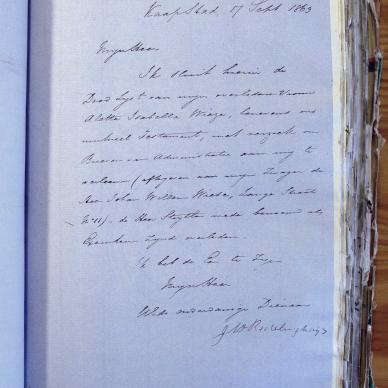 Kaapstad, 17 Sept 1863
Mijn Heer
Ik sluit hierin de
Dood Lyst van myn overledene Vrouw
Aletta Isabella Wiese, benevens ons
mutueel Testament, met verzoek om
Brieven van Administratie aan my te
verleenen (afgegeven aan myn Zwager de
Heer Johan Willem Wiese, Lange Straat
No 11) de Heer Stigling mede benoemd als
Executeur Zynde overleden.
Ik heb de Eer te Zyn
Myn Heer
UEds onderdanige Dienaar